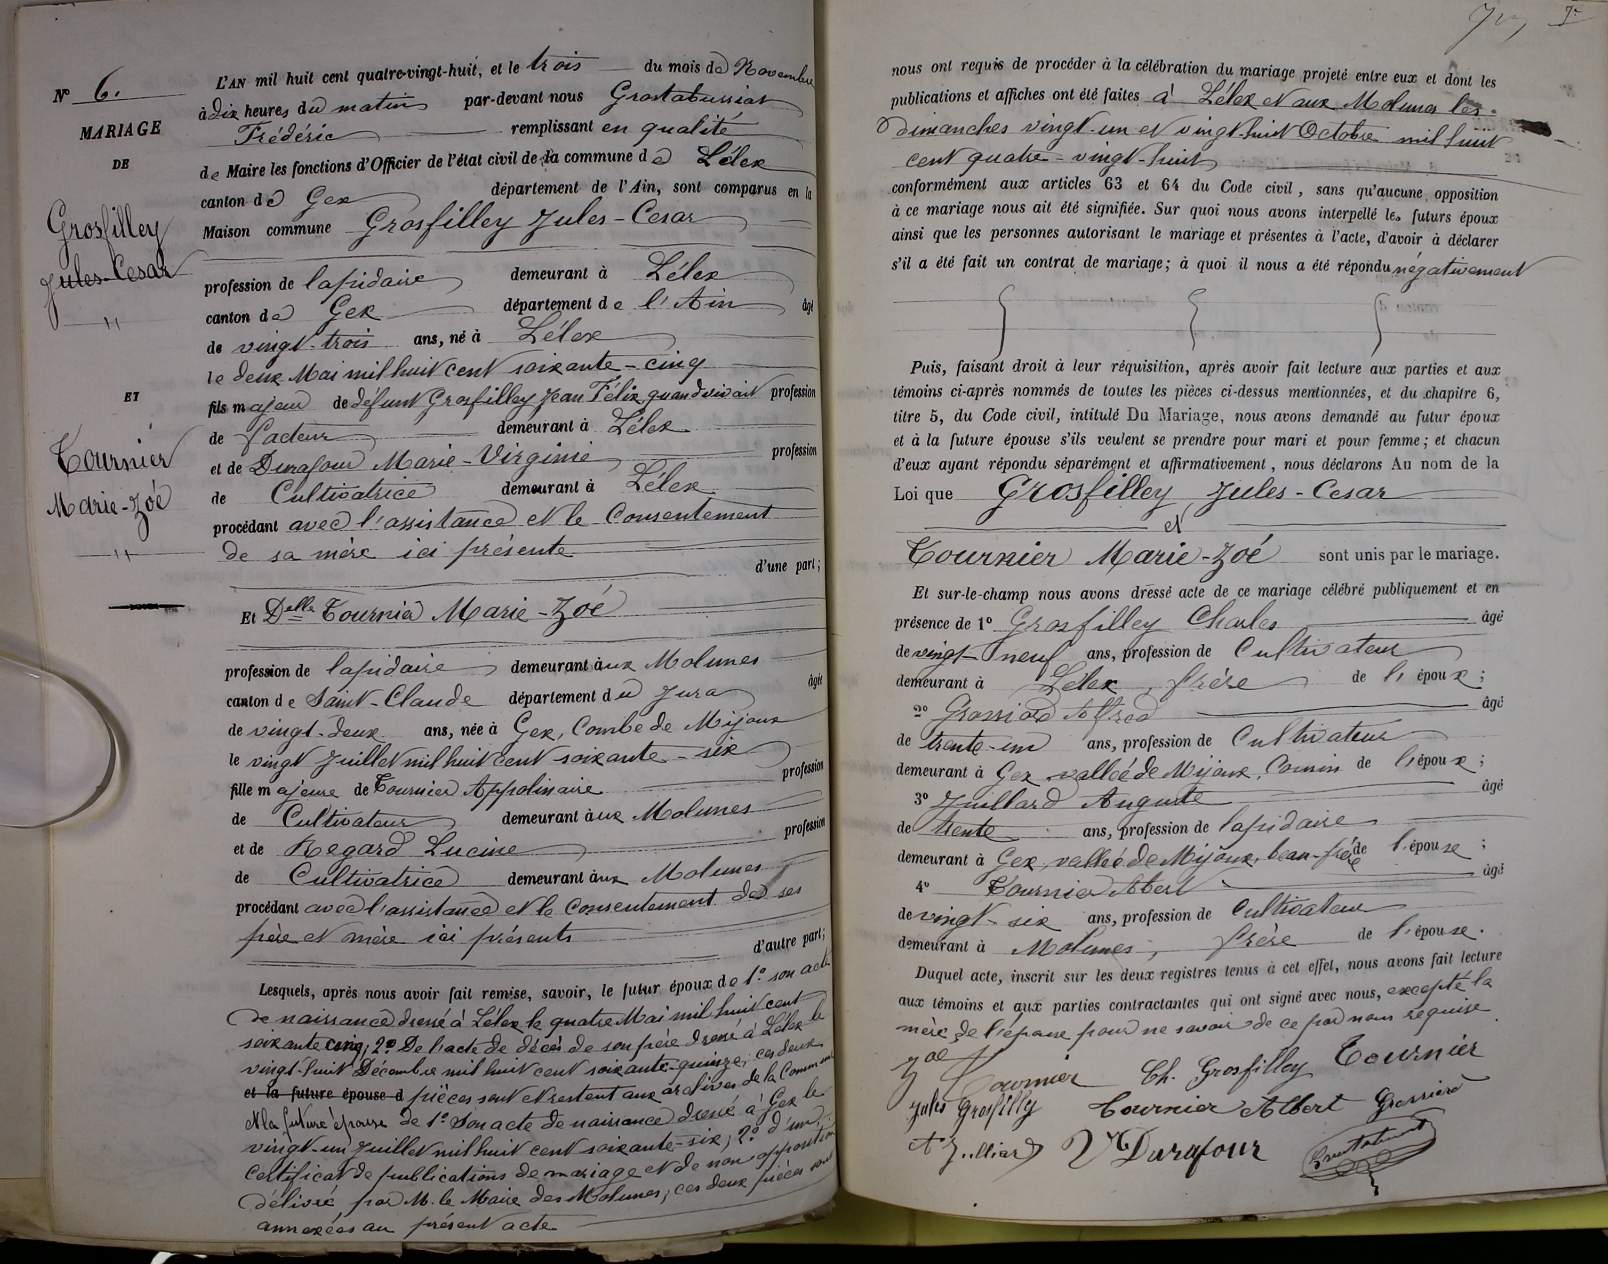 N° 6.
MARIAGE
DE
Grosfilley
Jules-Cesar
ET
Tournier
Marie-Zoé
L'AN mil huit cent quatre-vingt-huit, et le trois du mois de Novembre
à dix heures du matin par-devant nous Grostabussiat
Frédéric remplissant en qualité
de Maire les fonctions d'Officier de l'état civil de la commune de Lélex
canton de Gex département de l'Ain, sont comparus en la
Maison commune Grosfilley Jules-Cesar
profession de lapidaire demeurant à Lélex
canton de Gex département de l'Ain âgé
de vingt-trois ans, né à Lélex
le deux Mai mil huit cent soixante-cinq
fils majeur de défunt Grosfilley Jean Félix quand vivait profession
de facteur demeurant à Lélex
et de Durafour Marie-Virginie profession
de Cultivatrice demeurant à Lélex
procédant avec l'assistance et le Consentement
de sa mère ici présente
d'une part;
Et Delle Tournier Marie-Zoé
profession de lapidaire demeurant aux Molunes
canton de Saint-Claude département du Jura âgée
de vingt-deux ans, née à Gex, Combe de Mijoux
le vingt Juillet mil huit cent soixante-six
fille majeure de Tournier Appolinaire profession
de Cultivateur demeurant aux Molunes
et de Regard Lucine profession
de Cultivatrice demeurant aux Molunes
procédant avec l'assistance et le Consentement de ses
père et mère ici présents
d'autre part;
Lesquels, après nous avoir fait remise, savoir, le futur époux de 1° son acte
de naissance dressé à Lélex le quatre Mai mil huit cent
soixante cinq; 2° De l'acte de décès de son père dressé à Lélex le
vingt-huit Décembre mil huit cent soixante-quinze; ces deux
et la future épouse d pièces sont et restent aux archives de la Commune
et la future épouse de 1° Son acte de naissance dressé à Gex le
vingt-un Juillet mil huit cent soixante-six; 2° d'un
Certificat de publications de mariage et de non opposition
délivré par M. le Maire des Molunes; ces deux pièces sont
annexées au présent acte
nous ont requis de procéder à la célébration du mariage projeté entre eux et dont les
publications et affiches ont été faites à Lélex et aux Molunes les
dimanches vingt-un et vingt-huit Octobre mil huit
cent quatre-vingt-huit
conformément aux articles 63 et 64 du Code civil, sans qu'aucune opposition
à ce mariage nous ait été signifiée. Sur quoi nous avons interpellé les futurs époux
ainsi que les personnes autorisant le mariage et présentes à l'acte, d'avoir à déclarer
s'il a été fait un contrat de mariage; à quoi il nous a été répondu négativement
Puis, faisant droit à leur réquisition, après avoir fait lecture aux parties et aux
témoins ci-après nommés de toutes les pièces ci-dessus mentionnées, et du chapitre 6,
titre 5, du Code civil, intitulé Du Mariage, nous avons demandé au futur époux
et à la future épouse s'ils veulent se prendre pour mari et pour femme; et chacun
d'eux ayant répondu séparément et affirmativement, nous déclarons Au nom de la
Loi que Grosfilley Jules-Cesar
et
Tournier Marie-Zoé sont unis par le mariage.
Et sur-le-champ nous avons dressé acte de ce mariage célébré publiquement et en
présence de 1° Grosfilley Charles âgé
de vingt-neuf ans, profession de Cultivateur
demeurant à Lélex, frère de l'époux;
2° Grossiord Alfred âgé
de trente-un ans, profession de Cultivateur
demeurant à Gex vallée de Mijoux, Cousin de l'époux;
3° Juillard Auguste âgé
de trente ans, profession de lapidaire
demeurant à Gex, vallée de Mijoux, beau-frère de l'épouse;
4° Tournier Albert âgé
de vingt-six ans, profession de Cultivateur
demeurant à Molunes, frère de l'épouse.
Duquel acte, inscrit sur les deux registres tenus à cet effet, nous avons fait lecture
aux témoins et aux parties contractantes qui ont signé avec nous, excepté la
mère de l'épouse pour ne savoir de ce par nous requise
Zoé Tournier Ch. Grosfilley Tournier
Jules Grosfilly Tournier Albert Grossiord
A Juilliard V Durafour